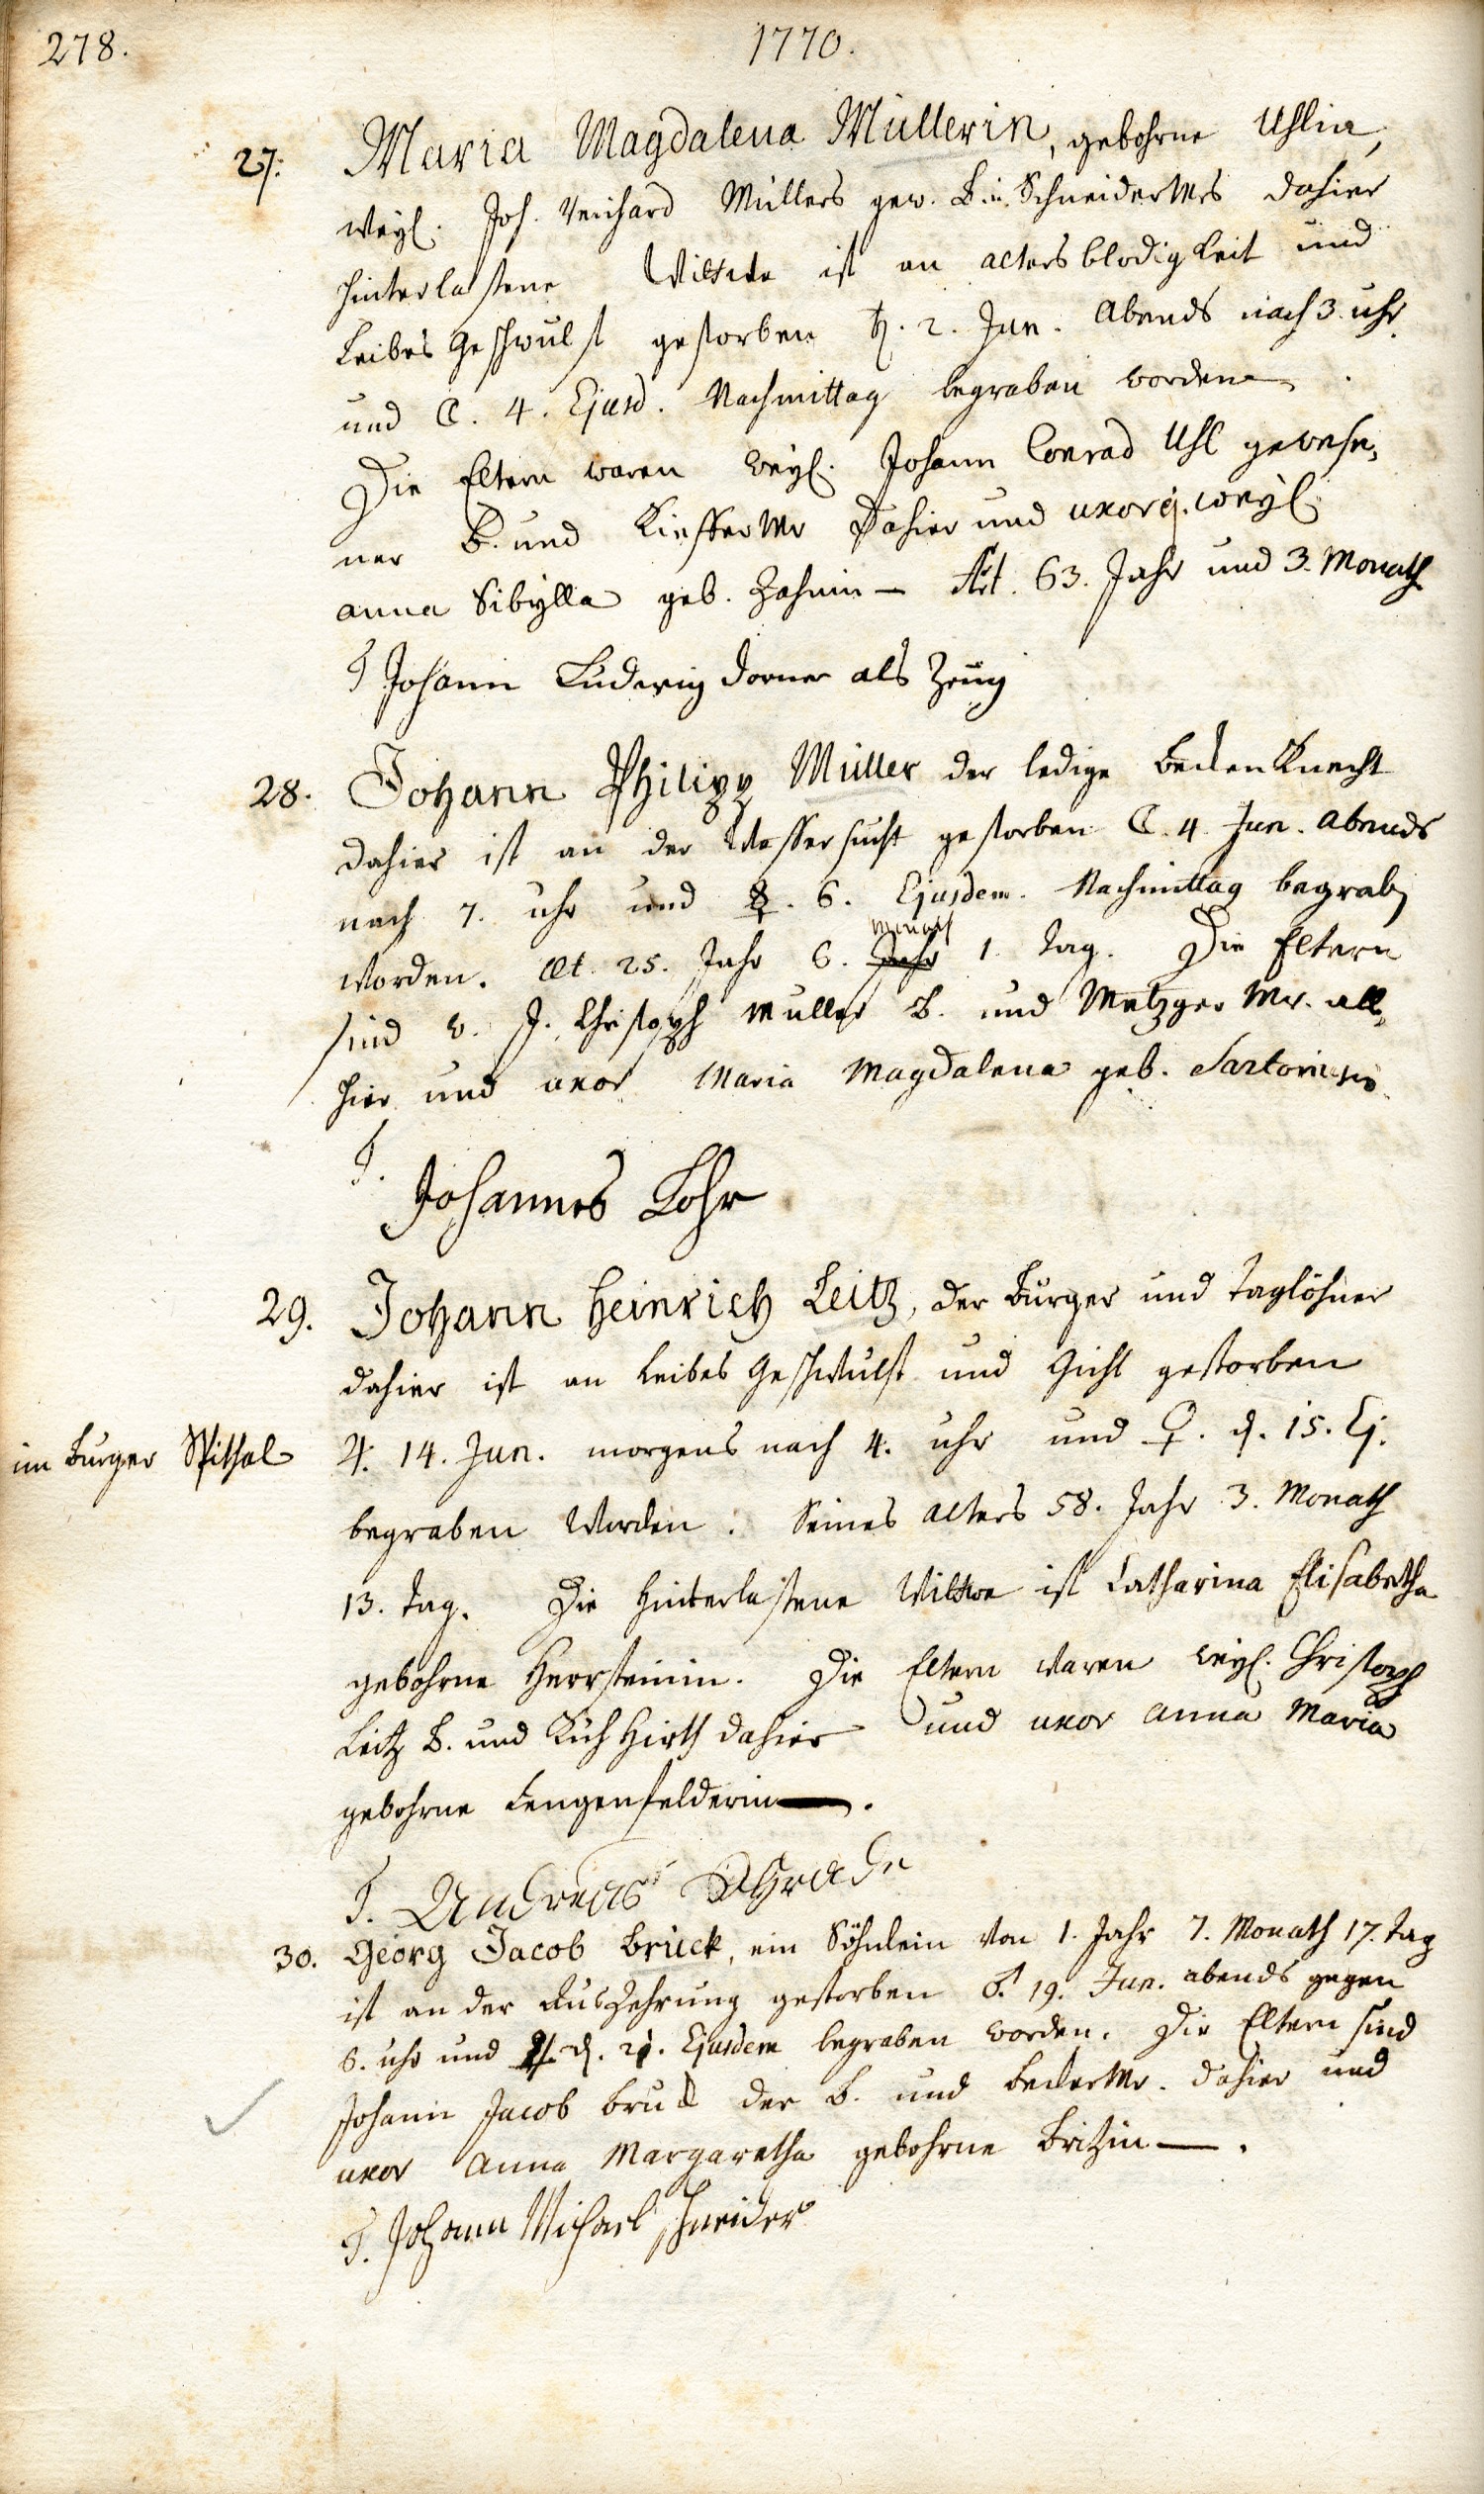 278.
1770.
27. Maria Magdalena Müllerin, gebohrne Uhlin,
weyl. Joh. Reichard Müllers gew. B. u. Schneider Mrs dahier
hinterlassene Wittwe ist an altersblödigkeit und
Leibes Geschwulst gestorben ♄. 2. Jun. Abends nach 3. uhr
und ☾. 4. Ejusd. Nachmittag begraben worden.
Die Eltern waren weyl. Johann Conrad Uhl gewese„
ner B. und Kieffer Mr dahier und uxor ej. weyl.
anna Sibylla geb. Zahnin — Æt. 63. Jahr und 3. Monath
T Johann Ludwig Dorner als Zeug
28. Johann Philipp Müller der ledige Becken Knecht
dahier ist an der Wassersucht gestorben ☾. 4. Jun. abends
nach 7. uhr und ☿. 6. Ejusdem. Nachmittag begraben
Monath
worden. Æt. 25. Jahr 6. Jahr 1. Tag. Die Eltern
sind w. J. Christoph Müller B. und Metzger Mr. all„
hier und uxor Maria Magdalena geb.
T.
Johannes Lohr
29. Johann Heinrich Leitz, der Burger und Taglöhner
dahier ist an Leibes Geschwulst und Gicht gestorben
im Burger Spithal
♃. 14. Jun. morgens nach 4. uhr und ♀. d. 15. Ej.
begraben worden. Seines alters 58. Jahr 3. Monath
13. Tag. Die Hinterlassene Wittwe ist Catharina Elisabetha
gebohrne Herrsteinin. Die Eltern waren weyl. Christoph
Leitz B. und Küh Hirth dahier und uxor anna Maria
gebohrne Lengenfelderin —.
T. Andreas Schrade
30. Georg Jacob Brück, ein Söhnlein von 1. Jahr 7. Monath 17. Tag
ist an der Auszehrung gestorben ♂. 19. Jun. abends gegen
6. uhr und ♃. d. 21. Ejusdem begraben worden. Die Eltern sind
Johann Jacob Bruck der B. und Becker Mr. dahier und
uxor Anna Margaretha gebohrne Britzin —.
T. Johann Michael Schneider